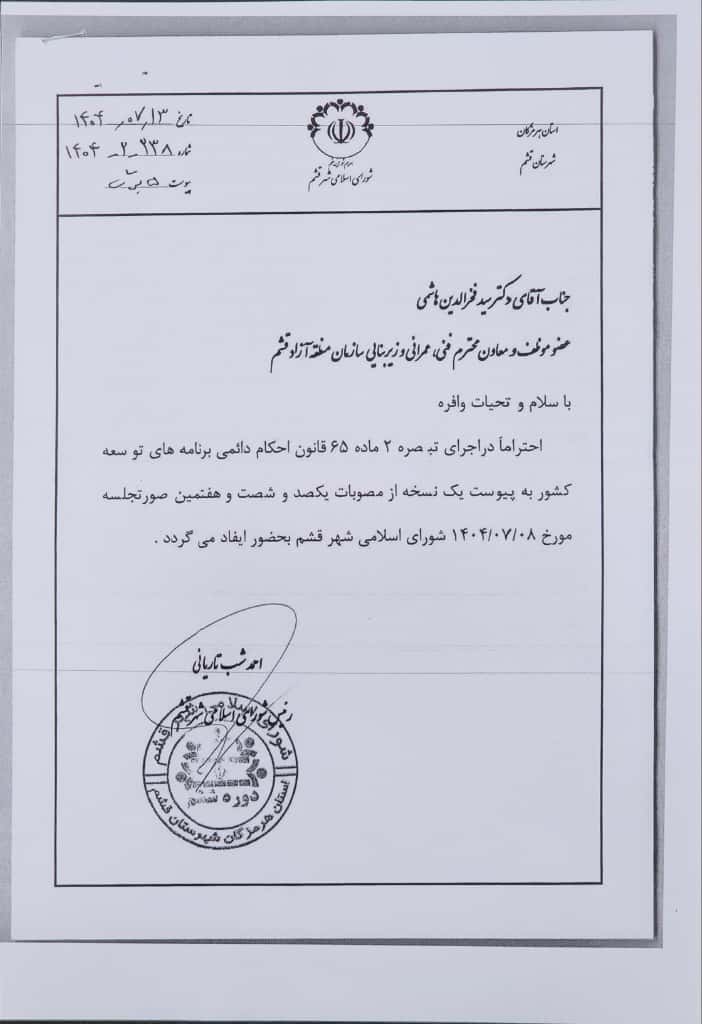 استان هرمزگان
شهرستان قشم
شورای اسلامی شهر قشم
تاریخ ۱۴۰۴٫۰۷٫۱۳
شماره ۲۳۸_۲_۱۴۰۴
پیوست ۵ برگ
جناب آقای دکتر سید فخرالدین هاشمی
عضو موظف و معاون محترم فنی، عمرانی و زیربنایی سازمان منطقه آزاد قشم
با سلام و تحیات وافره
احتراماً دراجرای تبصره ۲ ماده ۶۵ قانون احکام دائمی برنامه های توسعه
کشور به پیوست یک نسخه از مصوبات یکصد و شصت و هفتمین صورتجلسه
مورخ ۱۴۰۴/۰۷/۰۸ شورای اسلامی شهر قشم بحضور ایفاد می گردد .
احمد شب تاریانی
رئیس شورای اسلامی شهر قشم
شورای اسلامی شهر قشم
دوره ششم
استان هرمزگان شهرستان قشم